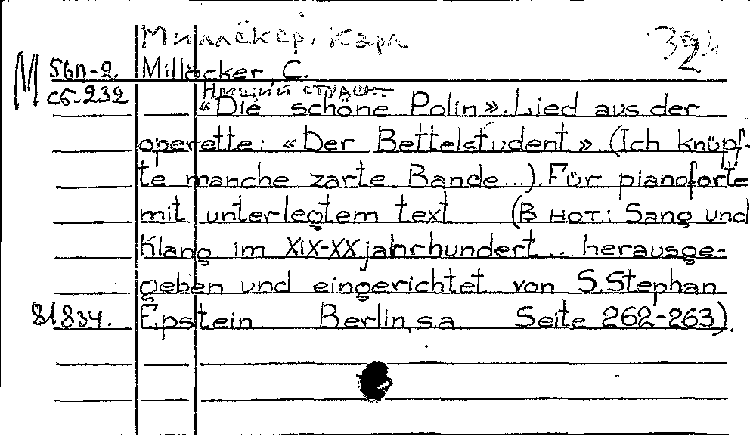 Миллёкер, Карл
394
М 56п-2. Millöcker, C.
сб-232 Нищий студент
«Die schöne Polin». Lied aus der
operette: «Der Bettelstudent» (Ich knüpf-
te manche zarte Bande...). Für pianoforte
mit unterlegtem text (В нот.: Sang und
Klang im XIX-XX jahrhundert... herausge-
geben und eingerichtet von S. Stephan
81834. Epstein Berlin, s.a. Seite 262-263).